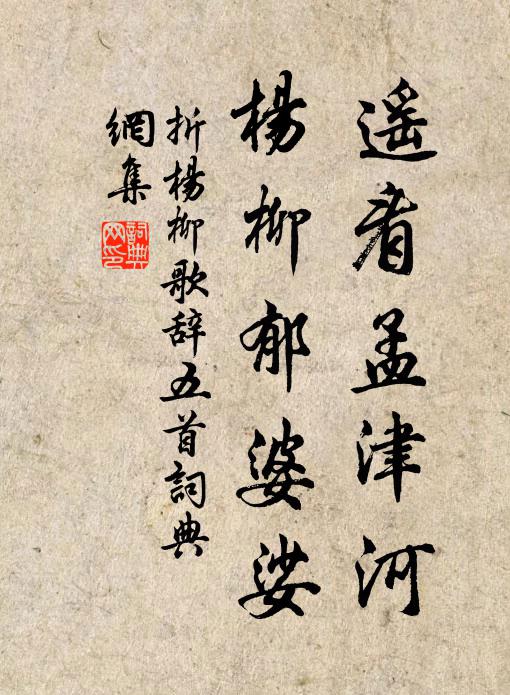 遥看孟津河
楊柳郁婆娑
折楊柳歌辞五首詞典
網集
詞典
网印